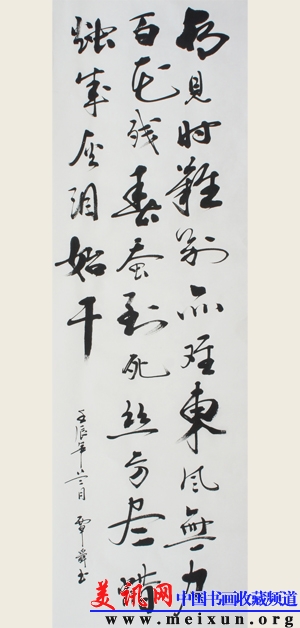 相見时難别亦难東风無力
百花残春蚕到死丝方尽蜡
炬成灰泪始干
壬辰年 月 覃 书
美讯网 中国书画收藏频道
www.meixun.org